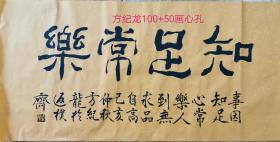 方纪龙100+50画心孔
知足常樂
事因
知足
心常
樂人
到無
求品
自高
己亥
仲秋
方紀
龍於
返樸
齋